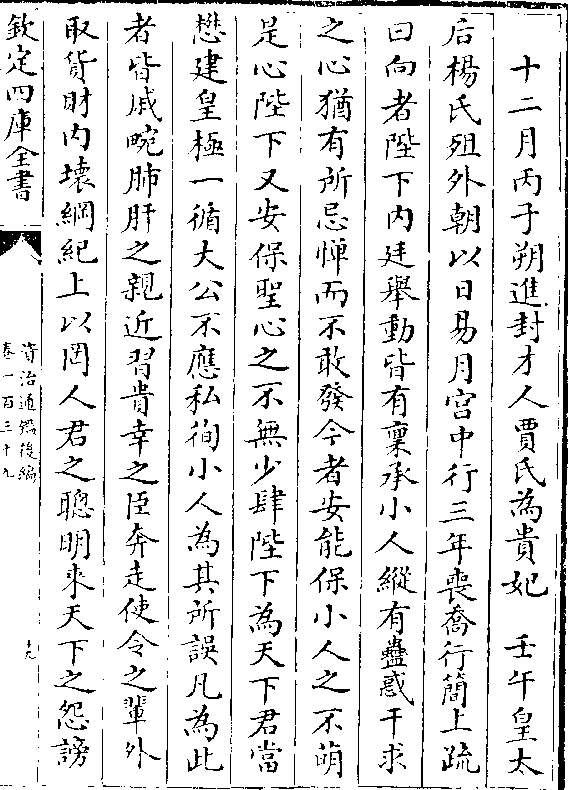 十二月丙子朔進封才人賈氏為貴妃　壬午皇太
后楊氏殂外朝以日易月宫中行三年喪喬行簡上疏
曰向者陛下内廷舉動皆有稟承小人縱有蠱惑干求
之心猶有所忌憚而不敢發今者安能保小人之不萌
是心陛下又安保聖心之不無少肆陛下為天下君當
懋建皇極一循大公不應私徇小人為其所誤凡為此
者皆戚畹肺肝之親近習貴幸之臣奔走使令之輩外
取貨財内壊綱紀上以罔人君之聰明来天下之怨謗
欽定四庫全書
資治通鑑後編
卷一百三十九
十九